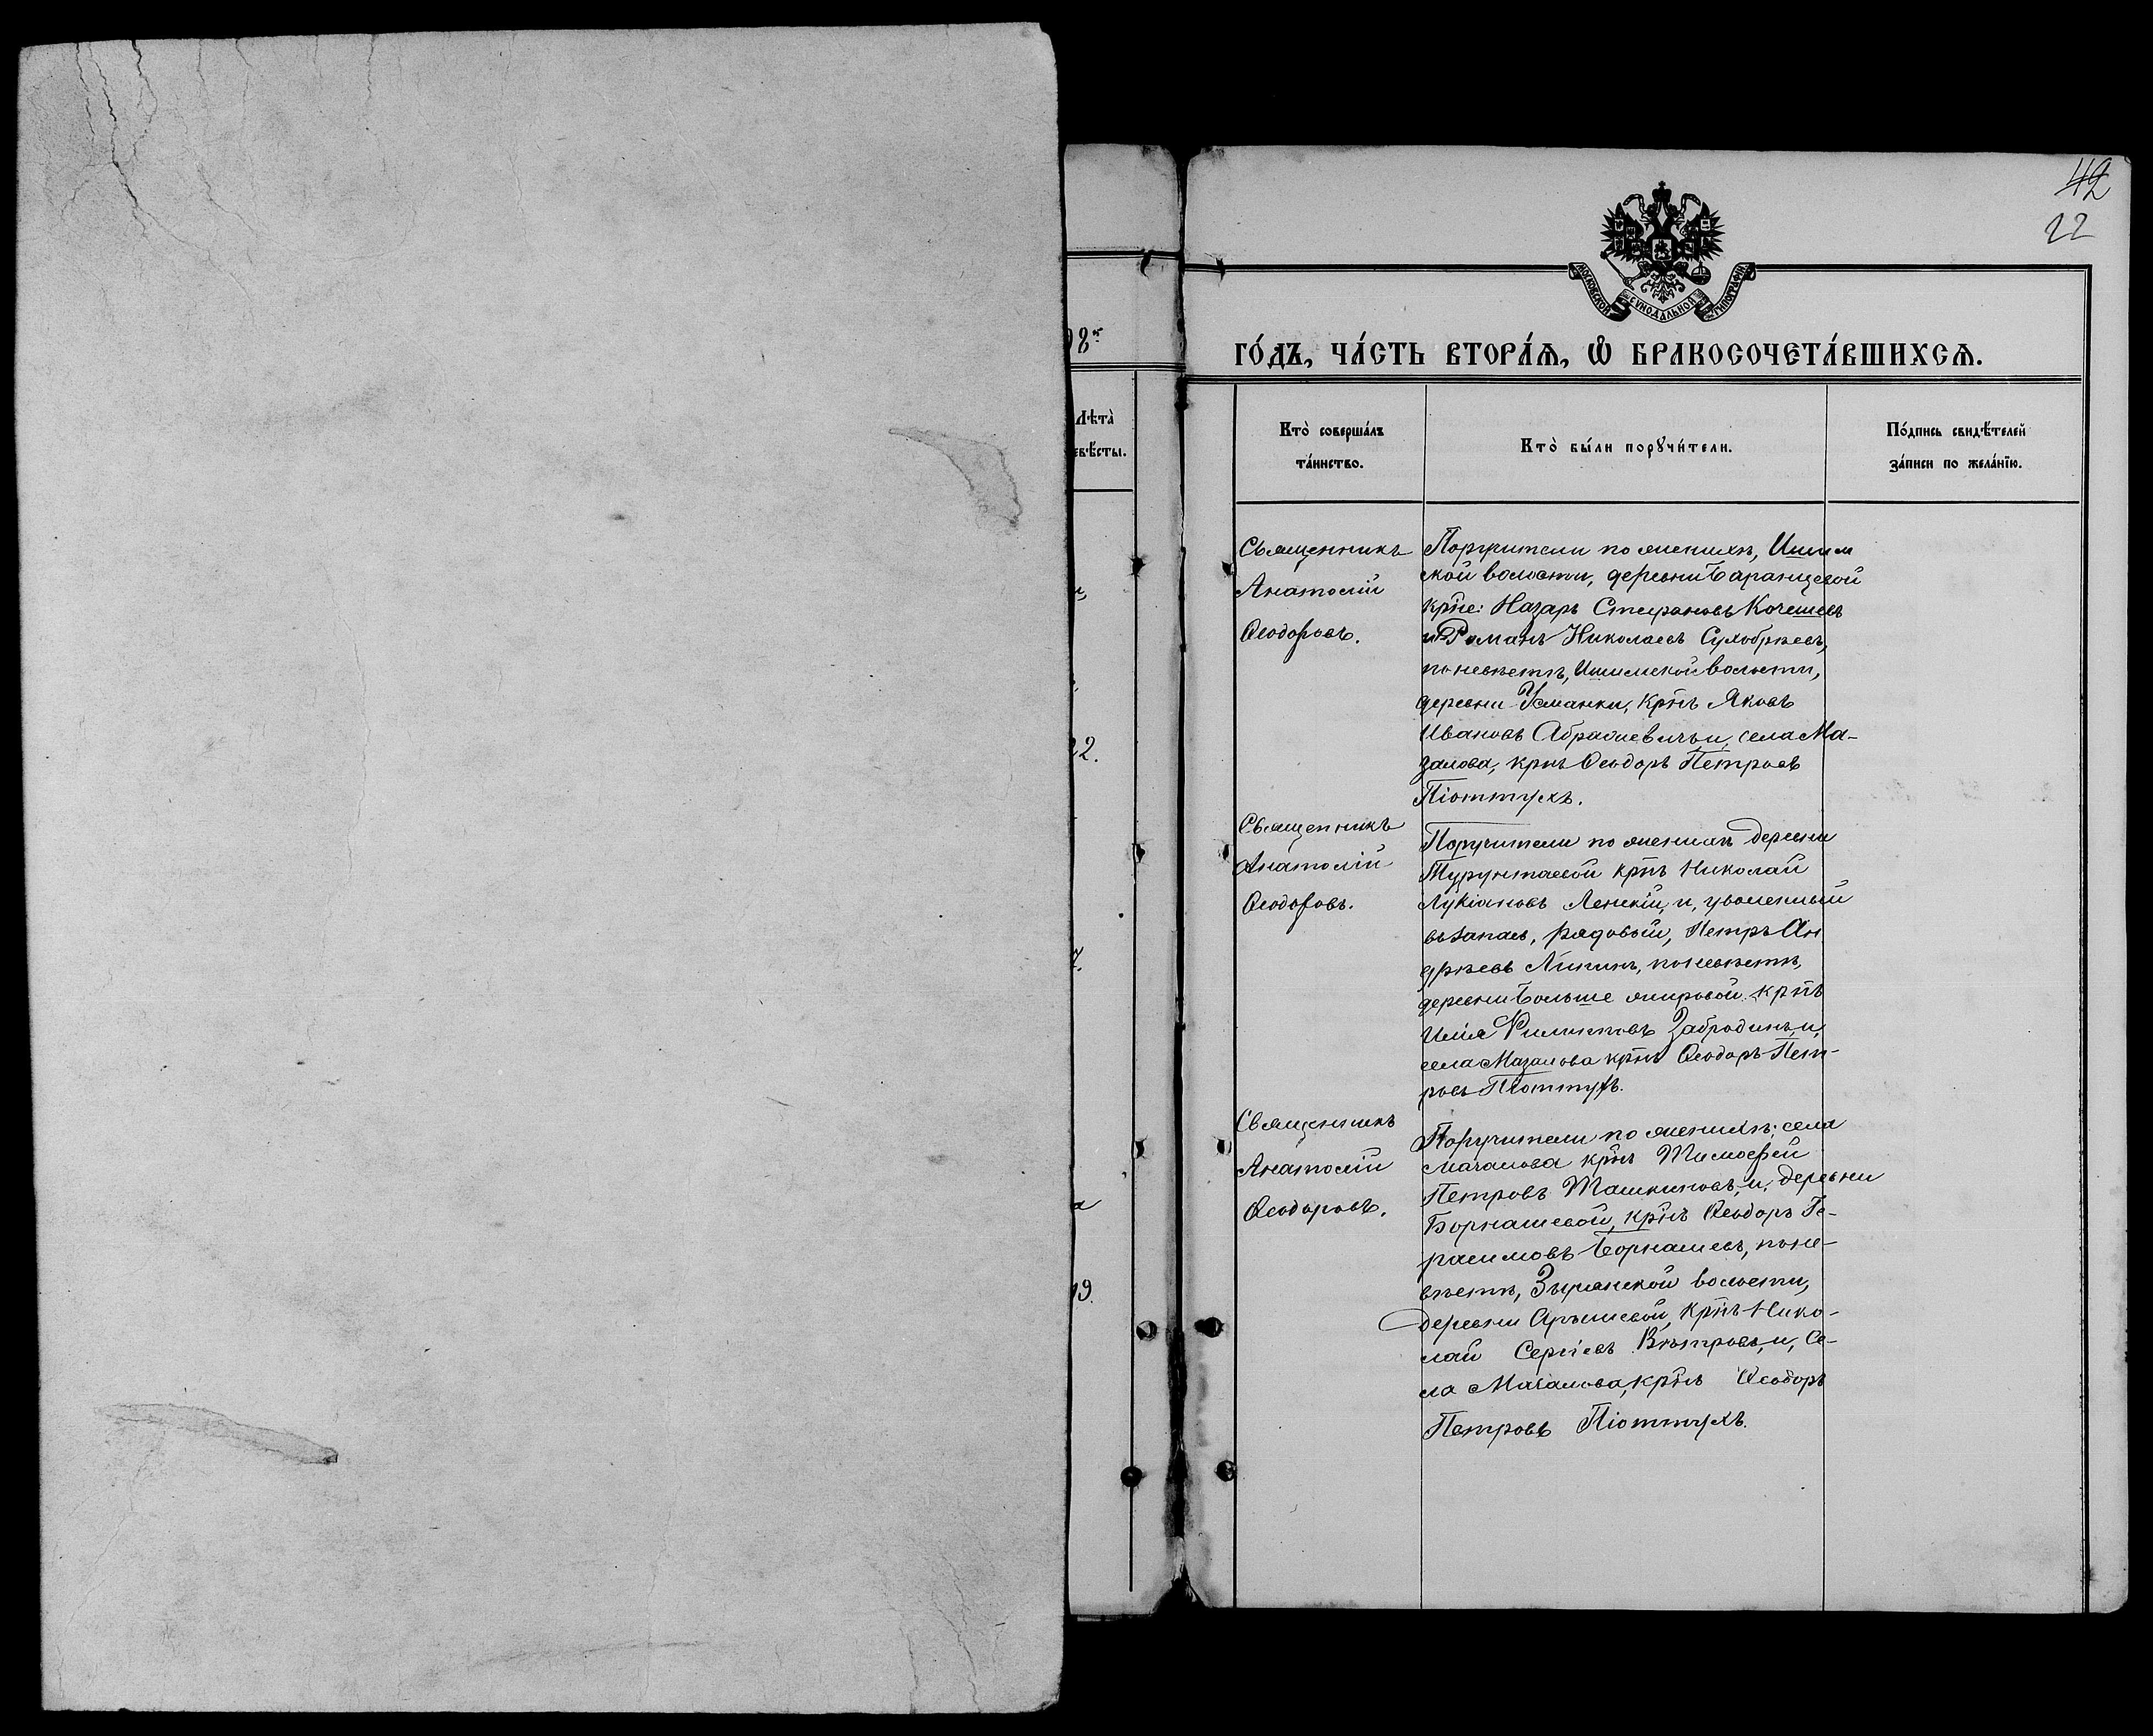 42
22
МОСКОВСКОЙ СѴНОДАЛЬНОЙ ТИПОГРАФІИ
98г
ГО́ДЪ, ЧА́СТЬ ВТОРА́Ѧ, Ѽ БРАКОСОЧЕТА́ВШИХСѦ.
Лѣта̀
евѣ́сты.
22.
19.
Кто̀ соверша́лъ
та́инство.
Кто̀ бы́ли порꙋчи́тели.
По́дпись свидѣ́телей
за́писи по жела́нїю.
Священникъ
Анатолій
Ѳеодоровъ.
Поручители по женихѣ, Ишим
ской волости, деревни Баранцевой
крн̃е: Назаръ Стефановъ Кочешевъ
и Романъ Николаевъ Сухобрѣевъ,
по невѣстѣ, Ишимской волости,
деревни Усманки, крн̃ъ Яковъ
Ивановъ и, села Ма-
залова, крнъ Ѳеодоръ Петровъ
Піоттухъ.
Священникъ
Анатолій
Ѳеодоровъ.
Поручители по женихѣ деревни
Турунтаевой крн̃ъ Николай
Лукіановъ Ленскій, и, уволенный
въ запасъ, рядовый, Петръ Ан
дрѣевъ Липинъ, по невѣстѣ,
деревни Больше жировой крн̃ъ
Илія Филиповъ Забродинъ, и,
села Мазалова крн̃ъ Ѳеодоръ Пет-
ровъ Піоттухъ.
Священникъ
Анатолій
Ѳеодоровъ.
Поручители по женихѣ: села
Мазалова крн̃ъ Тимофей
Петровъ Ташкиновъ, и, деревни
Борнашевой, крн̃ъ Ѳеодоръ Ге-
расимовъ Борнашевъ, по не-
вѣстѣ, Зырянской волости,
деревни Арышевой, крн̃ъ Нико-
лай Сергіевъ Вѣтровъ, и, се-
ла Мазалова, крн̃ъ Ѳеодоръ
Петровъ Піоттухъ.